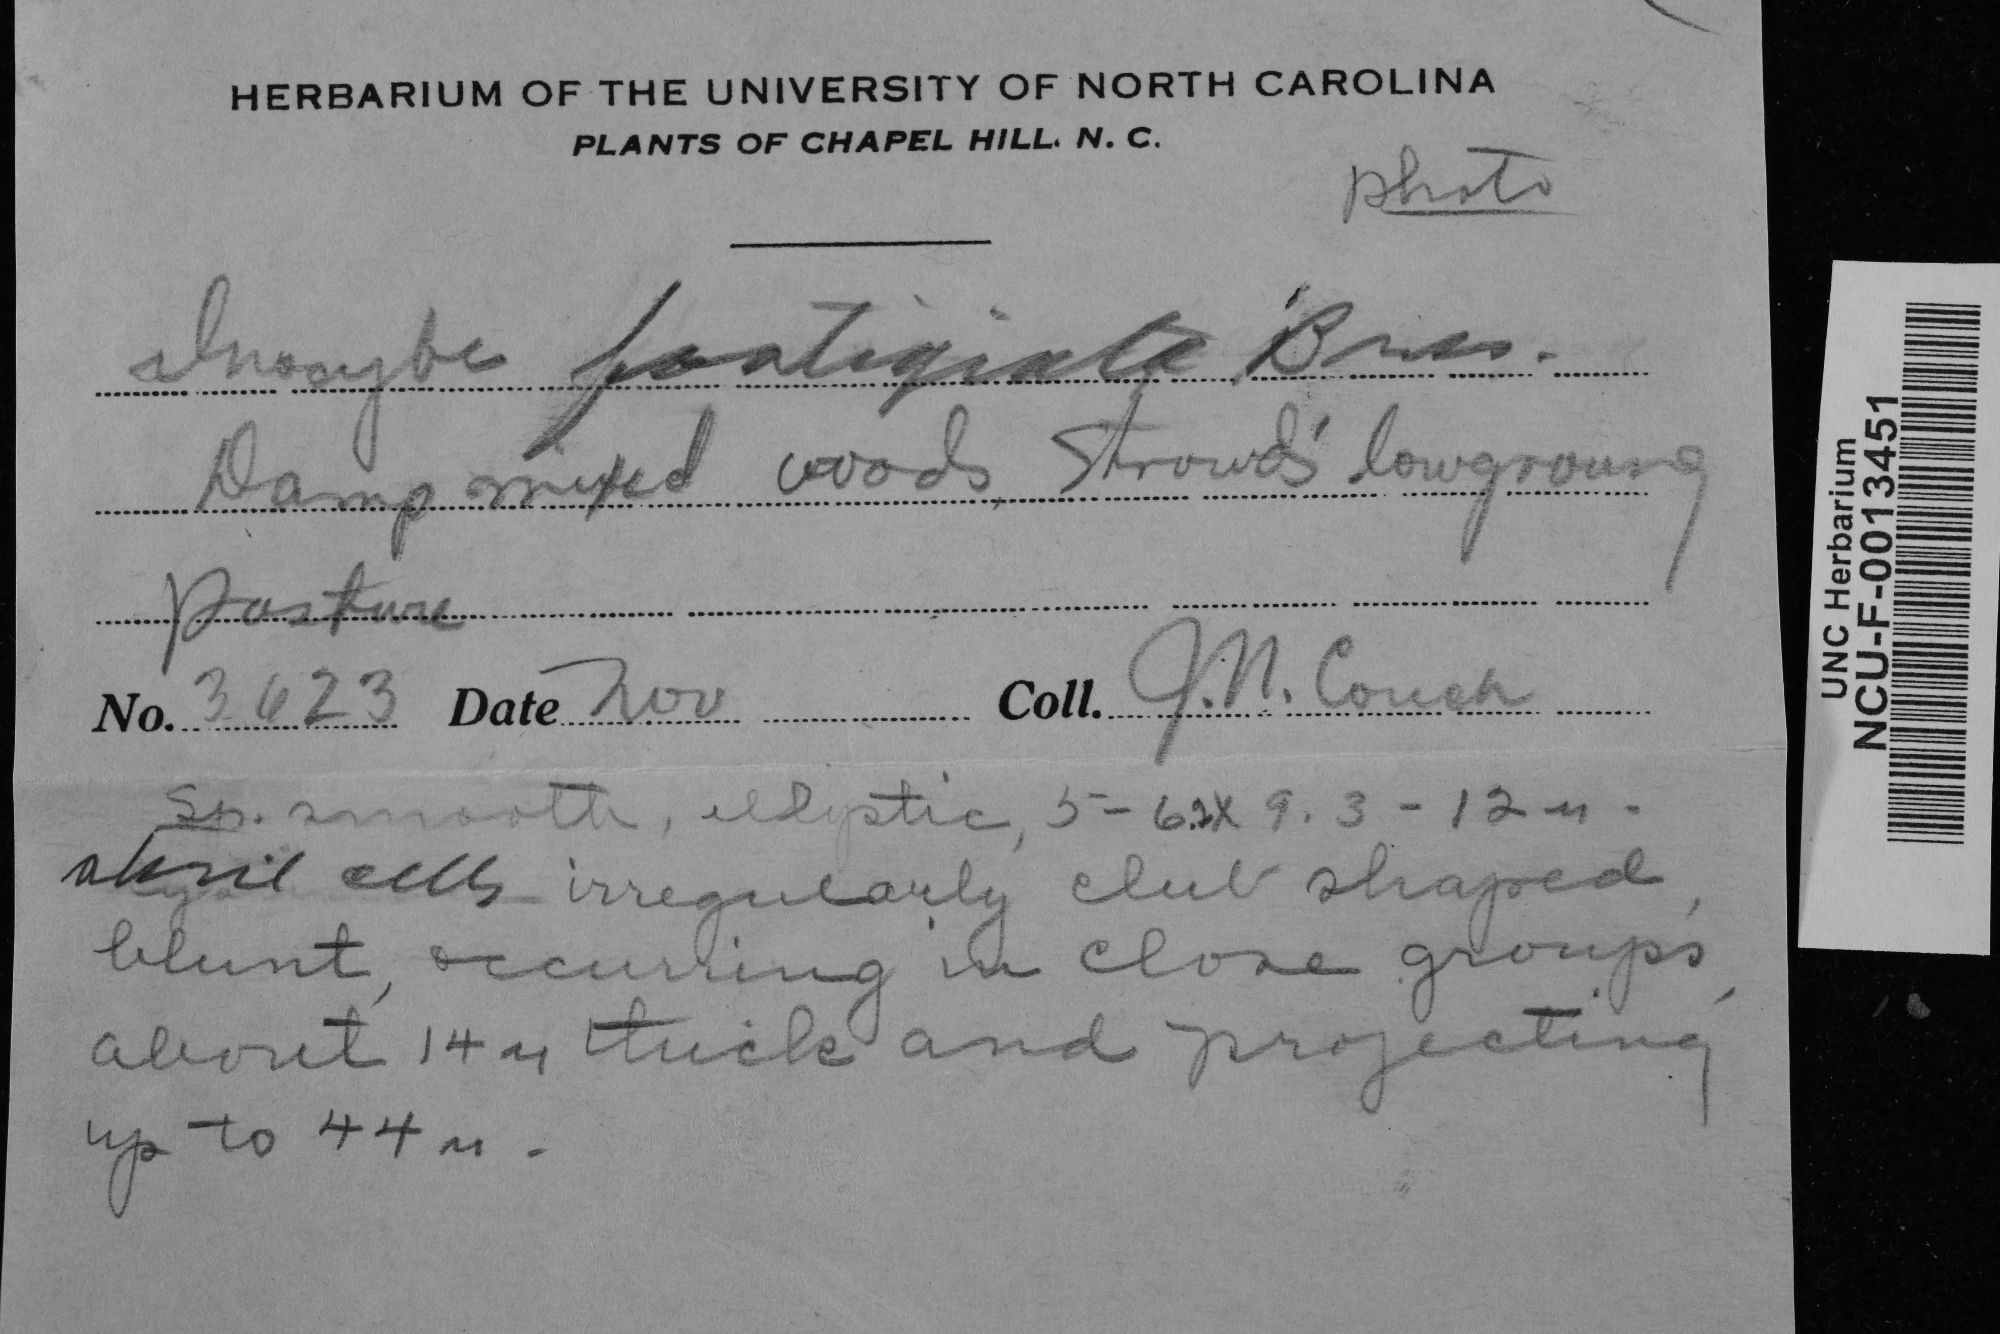 HERBARIUM OF THE UNIVERSITY OF NORTH CAROLINA
PLANTS OF CHAPEL HILL. N. C.
photo
Inocybe fastigiata Bres.
Damp mixed woods, Strowds' lowground
pasture
No. 3623 Date Nov Coll. J.N. Couch
Sp. smooth, elliptic, 5-6.2x 9.3-12 µ.
steril cells irregularly club shaped,
blunt, occurring in close groups,
about 14 µ thick and projecting
up to 44 µ.
UNC Herbarium
NCU-F-0013451